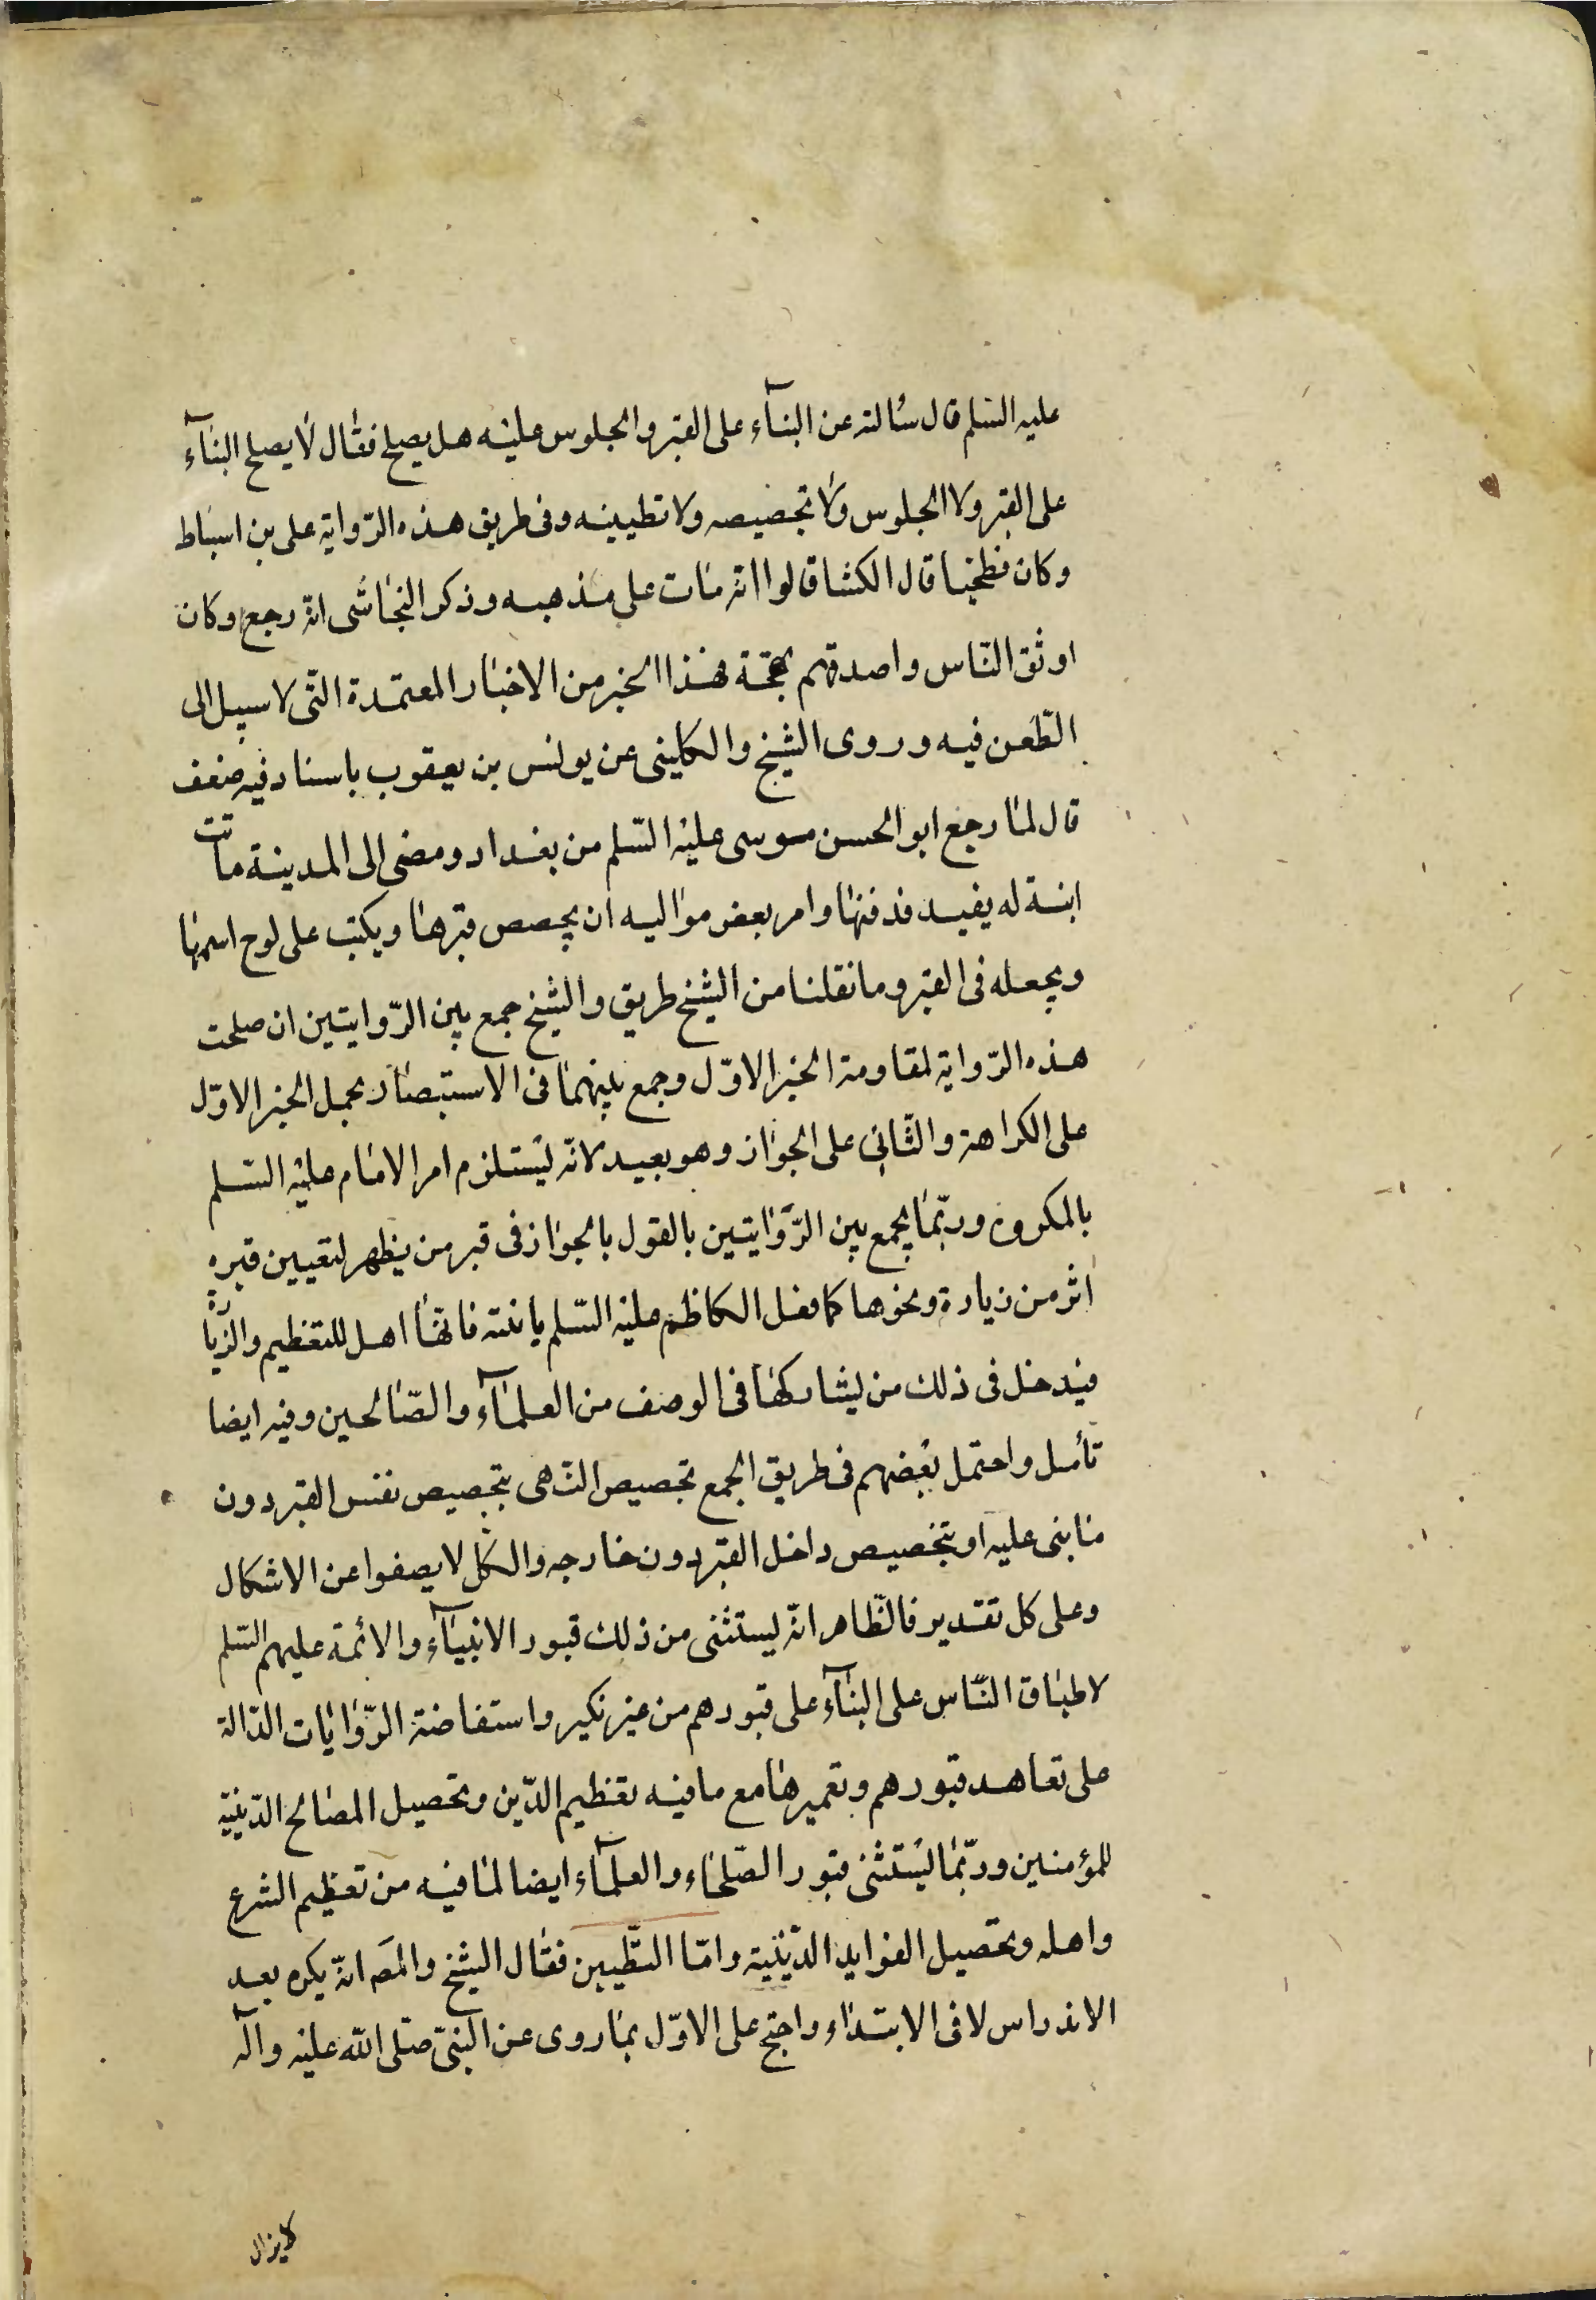 عليه السّلم قال سألته عن البنآء على القبر والجلوس عليه هل يصلح فقال لا يصلح البنآء
على القبر ولا الجلوس ولا تجصيصه ولا تطيينه وفى طريق هذه الرّواية على بن اسباط
وكان فطحيا قال الكشى قالوا انّه مات على مذهبه وذكر النجاشى انّه رجع وكان
اوثق النّاس واصدقهم لهجة فهذا الخبر من الاخبار المعتمدة الّتى لا سبيل الى
الطّعن فيه وروى الشيخ والكلينى عن يونس بن يعقوب باسناد فيه ضعف
قال لمّا رجع ابو الحسن موسى عليه السّلم من بغداد ومضى الى المدينة ماتت
ابنة له بفيد فدفنها وامر بعض مواليه ان يجصص قبرها ويكتب على لوح اسمها
ويجعله فى القبر وما نقلنا من الشيخ طريق والشيخ جمع بين الرّوايتين ان صلحت
هذه الرّواية لمقاومة الخبر الاوّل وجمع بينهما فى الاستبصار بحمل الخبر الاوّل
على الكراهة والثّانى على الجواز وهو بعيد لانّه يستلزم امر الامام عليه السّلم
بالمكروه وربّما يجمع بين الرّوايتين بالقول بالجواز فى قبر من يظهر لتعيين قبره
اثر من زيارة ونحوها كما فعل الكاظم عليه السّلم بابنته فانّها اهل للتعظيم والزّيارة
فيدخل فى ذلك من يشاركها فى الوصف من العلمآء والصّالحين وفيه ايضا
تأمل واحتمل بعضهم فى طريق الجمع تخصيص النّهى بتجصيص نفس القبر دون
ما بنى عليه او بتخصيص داخل القبر دون خارجه والكلّ لا يصفوا عن الاشكال
وعلى كل تقدير فالظّاهر انّه يستثنى من ذلك قبور الانبيآء والائمة عليهم السّلم
لاطباق النّاس على البنآء على قبورهم من غير نكير واستفاضة الرّوايات الدّالة
على تعاهد قبورهم وتعميرها مع ما فيه تعظيم الدّين وتحصيل المصالح الدّينيّة
للمؤمنين وربّما يستثنى قبور الصّلحاء والعلمآء ايضا لما فيه من تعظيم الشرع
واهله وتحصيل الفوايد الدّينيّة وامّا التّطيين فقال الشيخ والمصَ انّه يكره بعد
الاندراس لا فى الابتداء واحتج على الاوّل بما روى عن النّبىّ صلّى الله عليه وآله
لا يزال